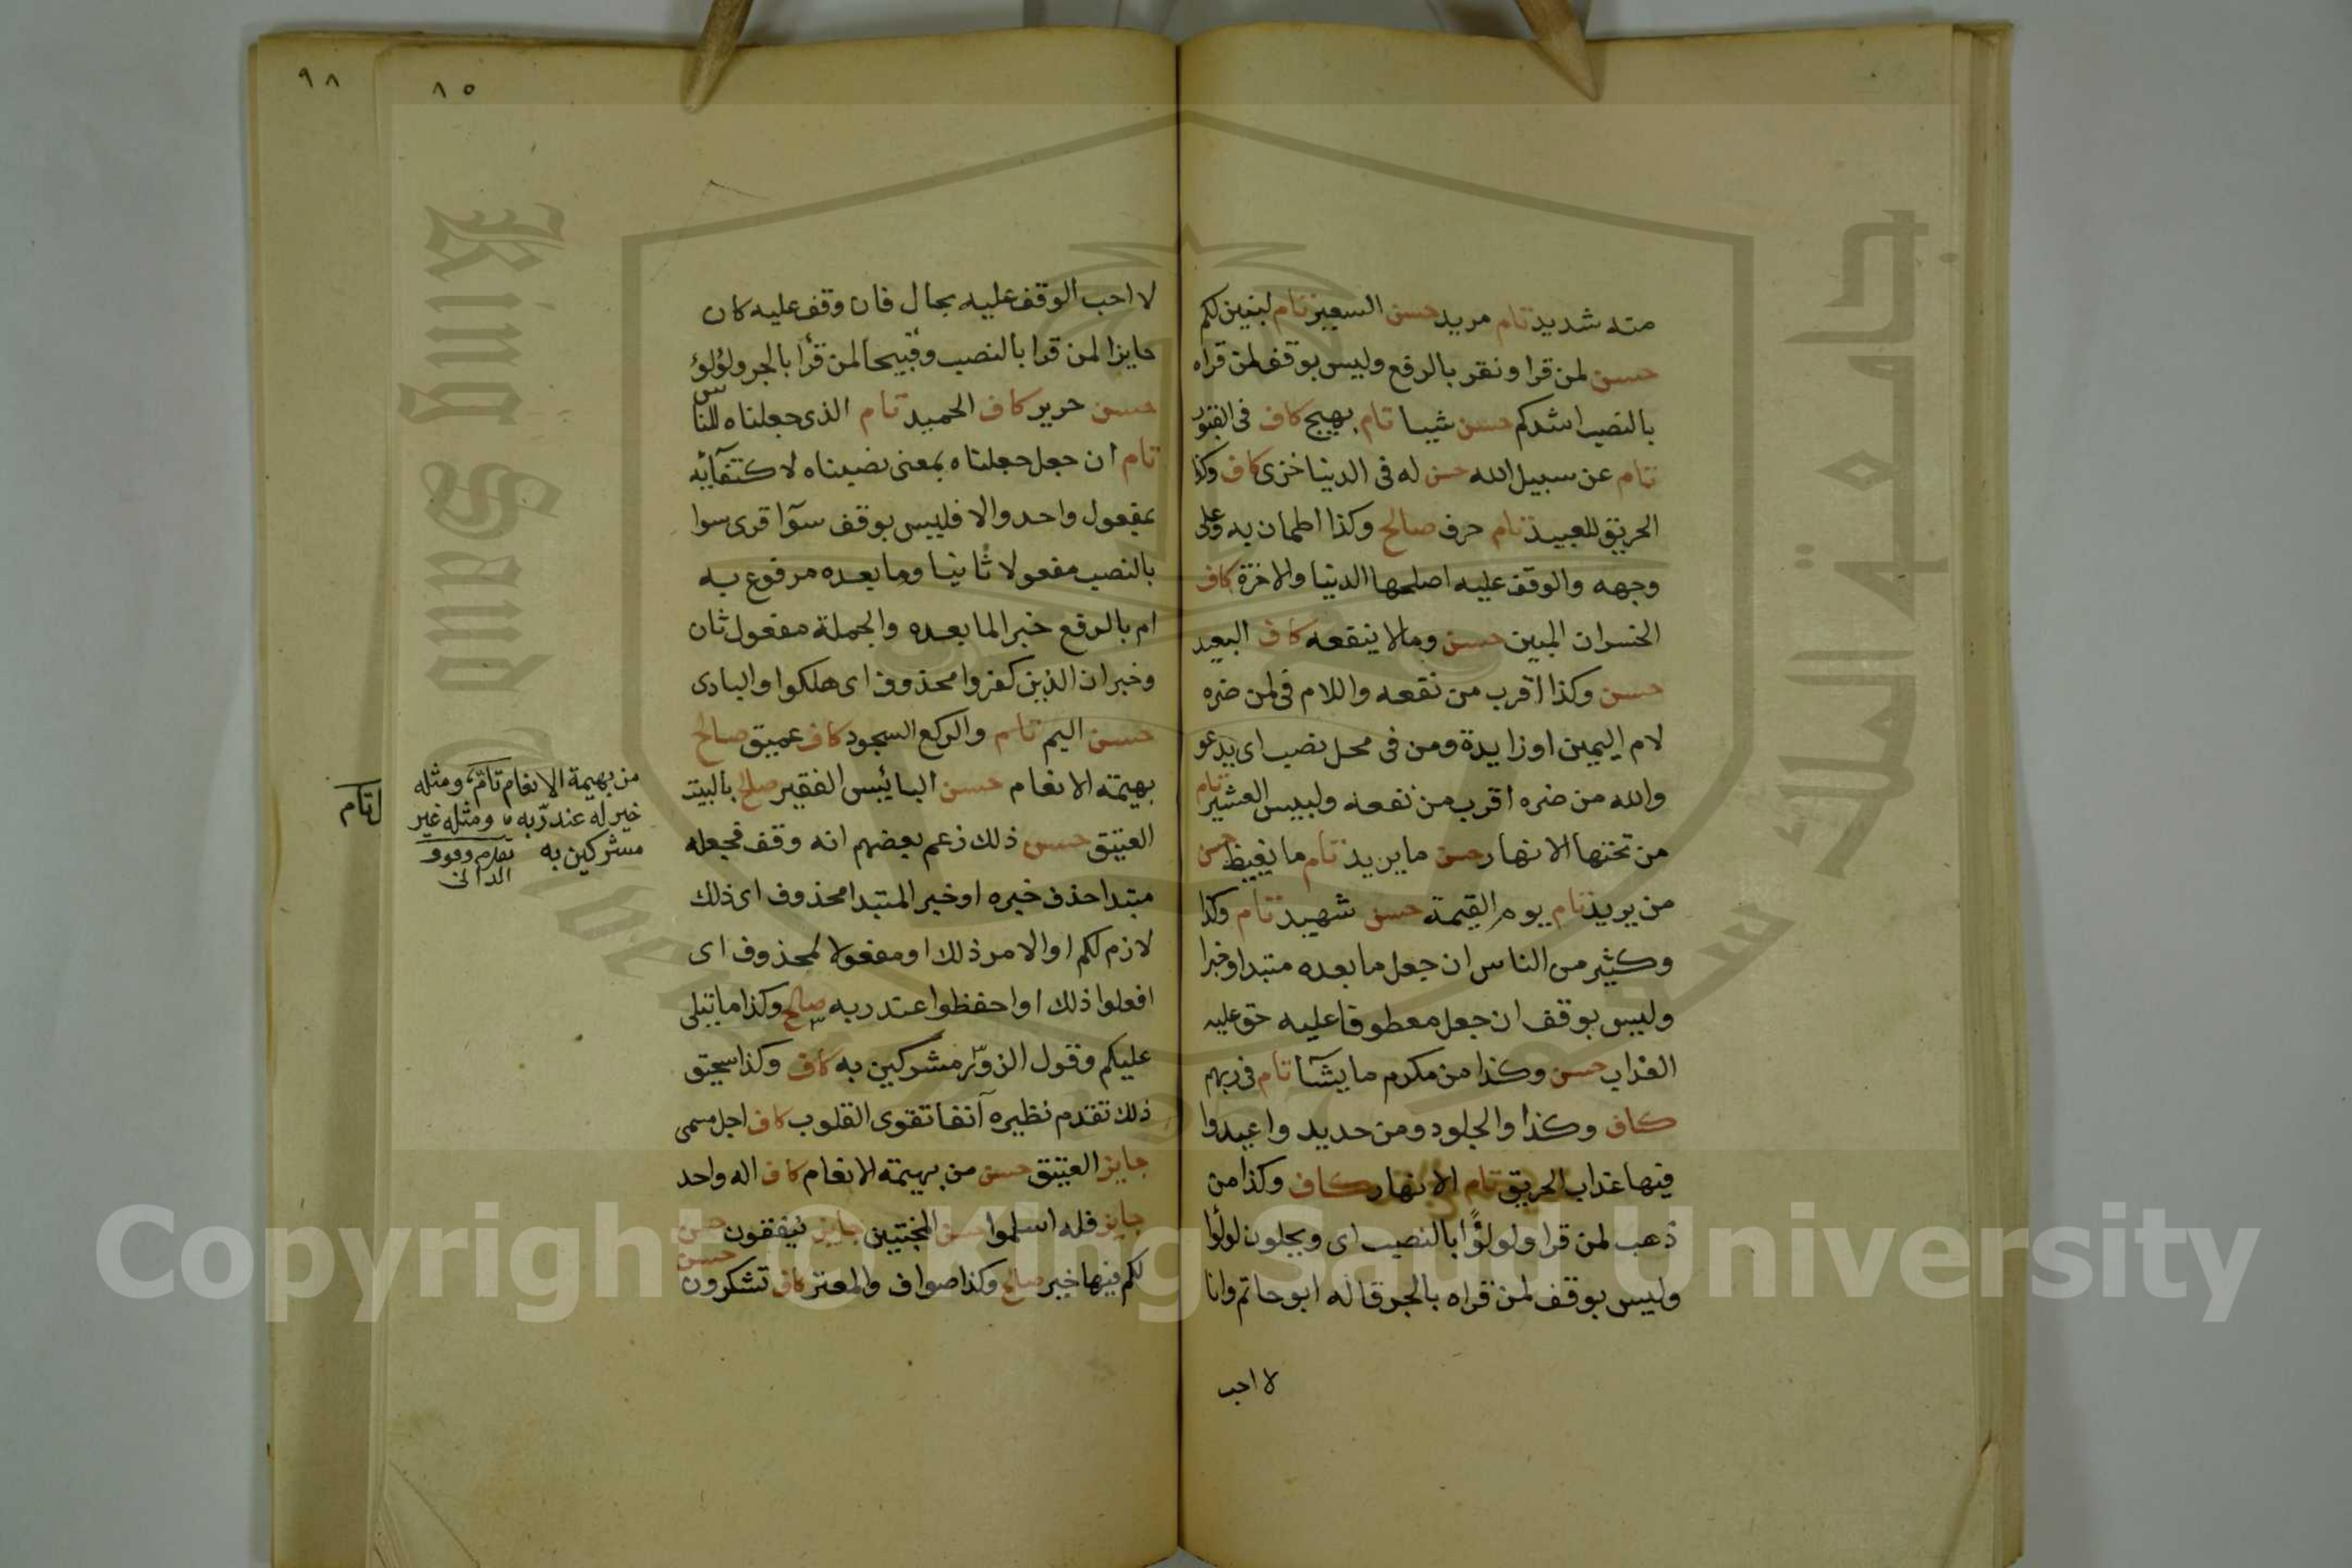 منه شديد تام مريد حسن السعير تام لنبين لكم
حسن لمن قرا ونقر بالرفع وليس بوقف لمن قراه
بالنصب اشدكم حسن شيبا تام بهيج كاف فى القبور
تام عن سبيل الله حسن له فى الدنيا خزى كاف وكذا
الحريق للعبيد تام حرف صالح وكذا اطمان به وعلى
وجهه والوقف عليه اصلحها الدنيا والاخرة كاف
الخسران المبين حسن ومالا ينفعه كاف البعيد
حسن وكذا اقرب من نفعه واللام فى لمن ضره
لام اليمين او زايدة ومن فى محل نصب اى يدعو
والله من ضره اقرب من نفعه ولبيس العشير تام
من تحتها الانهار حسن ما يريد تام ما يغيظ حسن
من يريد تام يوم القيمة حسن شهيد تام وكذا
وكثير من الناس ان جعل ما بعده مبتدا وخبرا
وليس بوقف ان جعل معطوفا عليه حق عليه
العذاب حسن وكذا من مكرم ما يشآ تام فى ربهم
كاف وكذا والجلود ومن حديد واعيدوا
فيها عذاب الحريق تام الانهار كاف وكذا من
ذهب لمن قرا ولولؤًا بالنصب اى ويحلون لولؤا
وليس بوقف لمن قراه بالجر قاله ابو حاتم وانا
لا احب
٩٨
٨٥
لا احب الوقف عليه بحال فان وقف عليه كان
جايزا لمن قرا بالنصب وقبيحا لمن قرأ بالجر ولؤلؤ
حسن حرير كاف الحميد تام الذى جعلناه للناس
تام ان جعل جعلناه بمعنى نصبناه لاكتفآئه
بمفعول واحد والا فليس بوقف سوآ اقرى سوا
بالنصب مفعولا ثانيا وما بعده مرفوع به
ام بالرفع خبرا لما بعده والجملة مفعول ثان
وخبر ان الذين كفروا محذوف اى هلكوا والبادى
حسن اليم تام والركع السجود كاف عميق صالح
بهيمة الانعام حسن البائيس الفقير صالح بالبيت
العتيق حسن ذلك زعم بعضهم انه وقف فجعله
مبتدا حذف خبره او خبر المبتدا محذوف اى ذلك
لازم لكم او الامر ذلك او مفعولا لمحذوف اى
افعلوا ذلك او احفظوا عند ربه صالح وكذا ما يتلى
عليكم وقول الزور مشركين به كاف وكذا سحيق
ذلك تقدم نظيره آنفا تقوى القلوب كاف اجل مسمى
جايز العتيق حسن من بهيمة الانعام كاف اله واحد
جايز فله اسلموا حسن المخبتين جايز ينفقون حسن
لكم فيها خير صالح وكذا صواف والمعتر كاف تشكرون حسن
من بهيمة الانعام تام، ومثله
خير له عند ربه ومثله غير
مشركين به
الدانى
تام
Copyright © King Saud University
King Saud University
جامعة الملك سعود